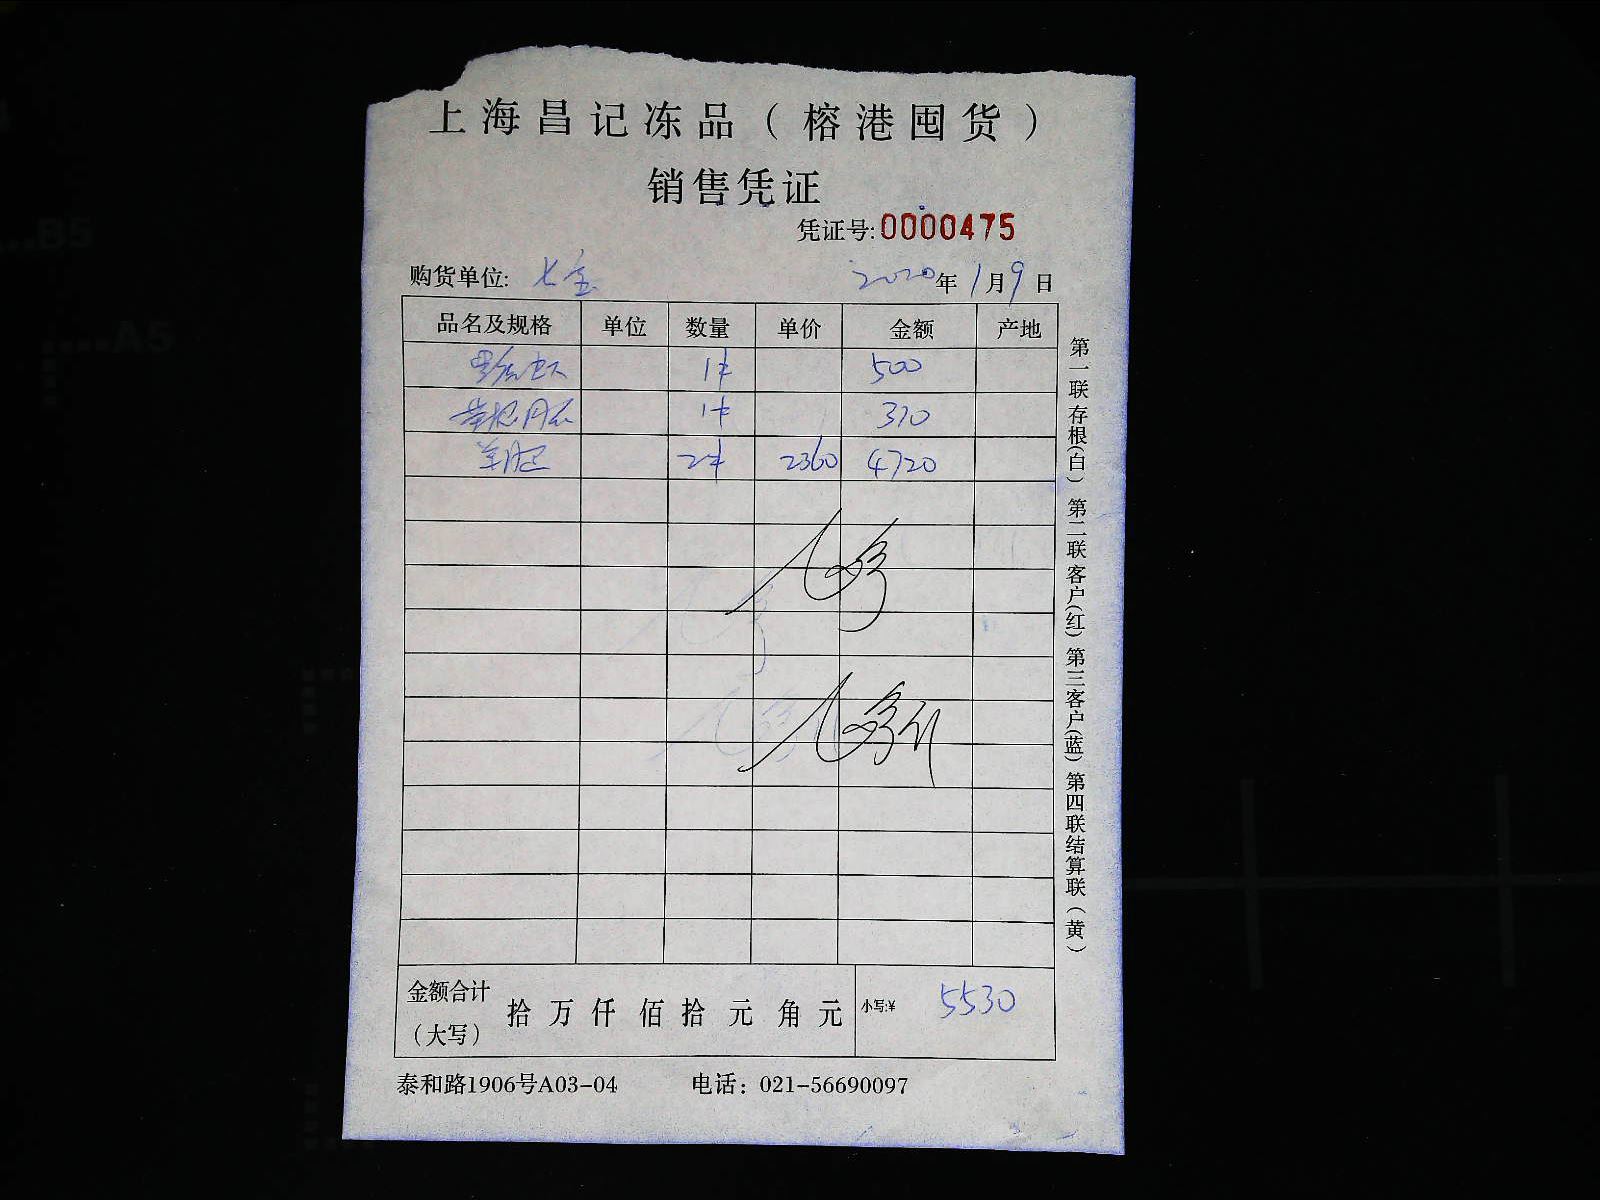 上海昌记冻品（榕港囤货）
销售凭证
凭证号:0000475
购货单位: 七宝 2020年1月9日
品名及规格 单位 数量 单价 金额 产地
1件 500
1件 310
2件 2360 4720
金额合计（大写） 拾 万 仟 佰 拾 元 角 元 小写:¥ 5530
泰和路1906号A03-04 电话：021-56690097
第一联存根(白) 第二联客户(红) 第三客户(蓝) 第四联结算联(黄)